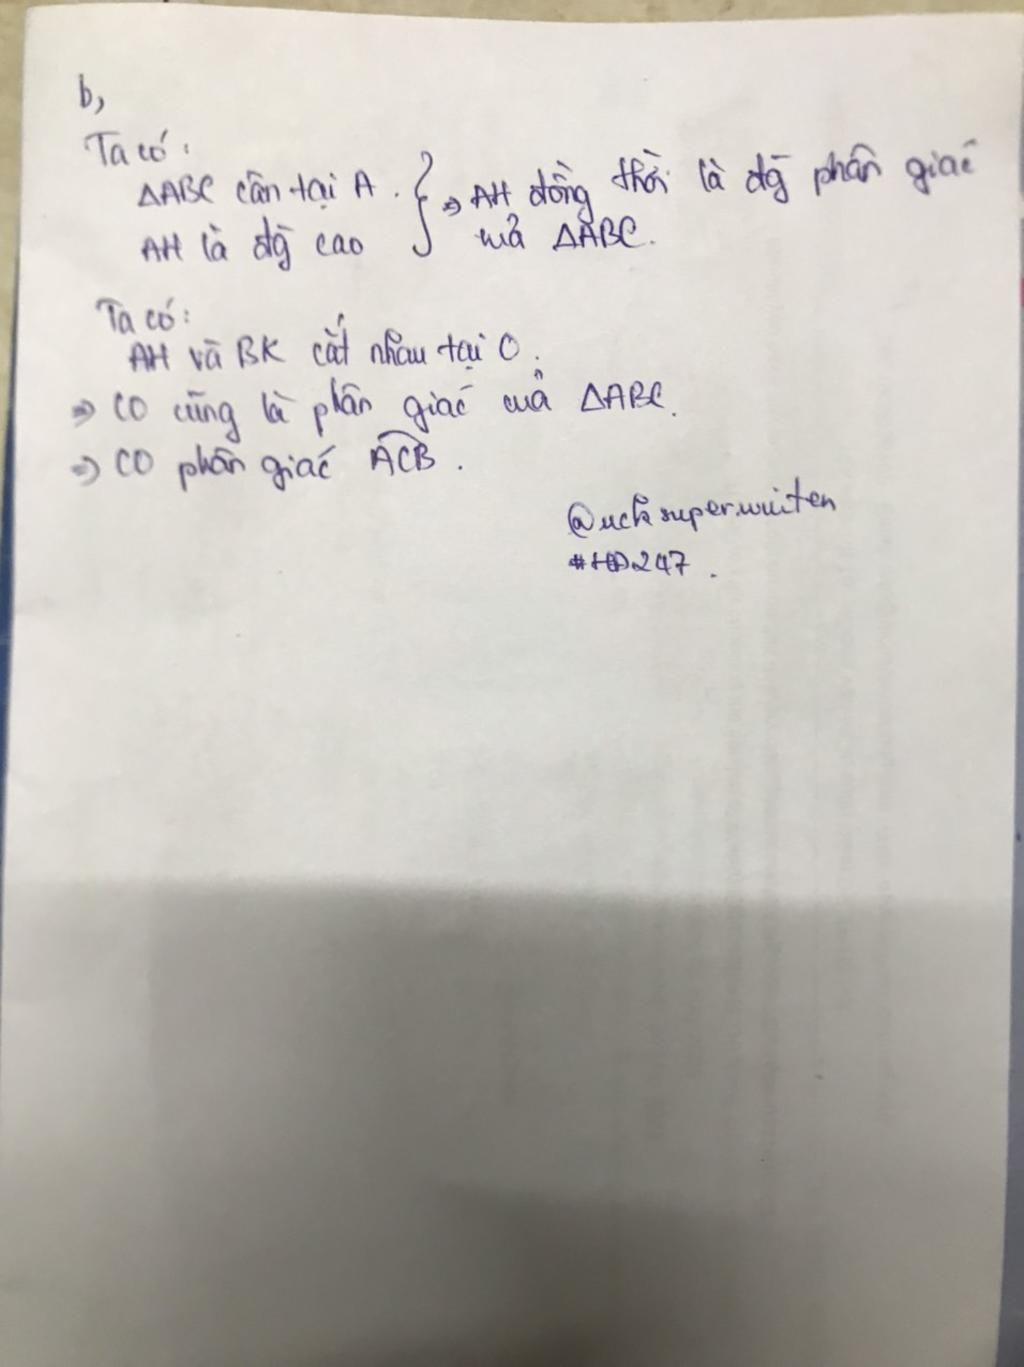 b,
Ta có:
ΔABC cân tại A. } => AH đồng thời là đg̀ phân giác
AH là đg̀ cao của ΔABC.
Ta có:
AH và BK cắt nhau tại O.
=> CO cũng là phân giác của ΔABC.
=> CO phân giác ACB.
#HD247.